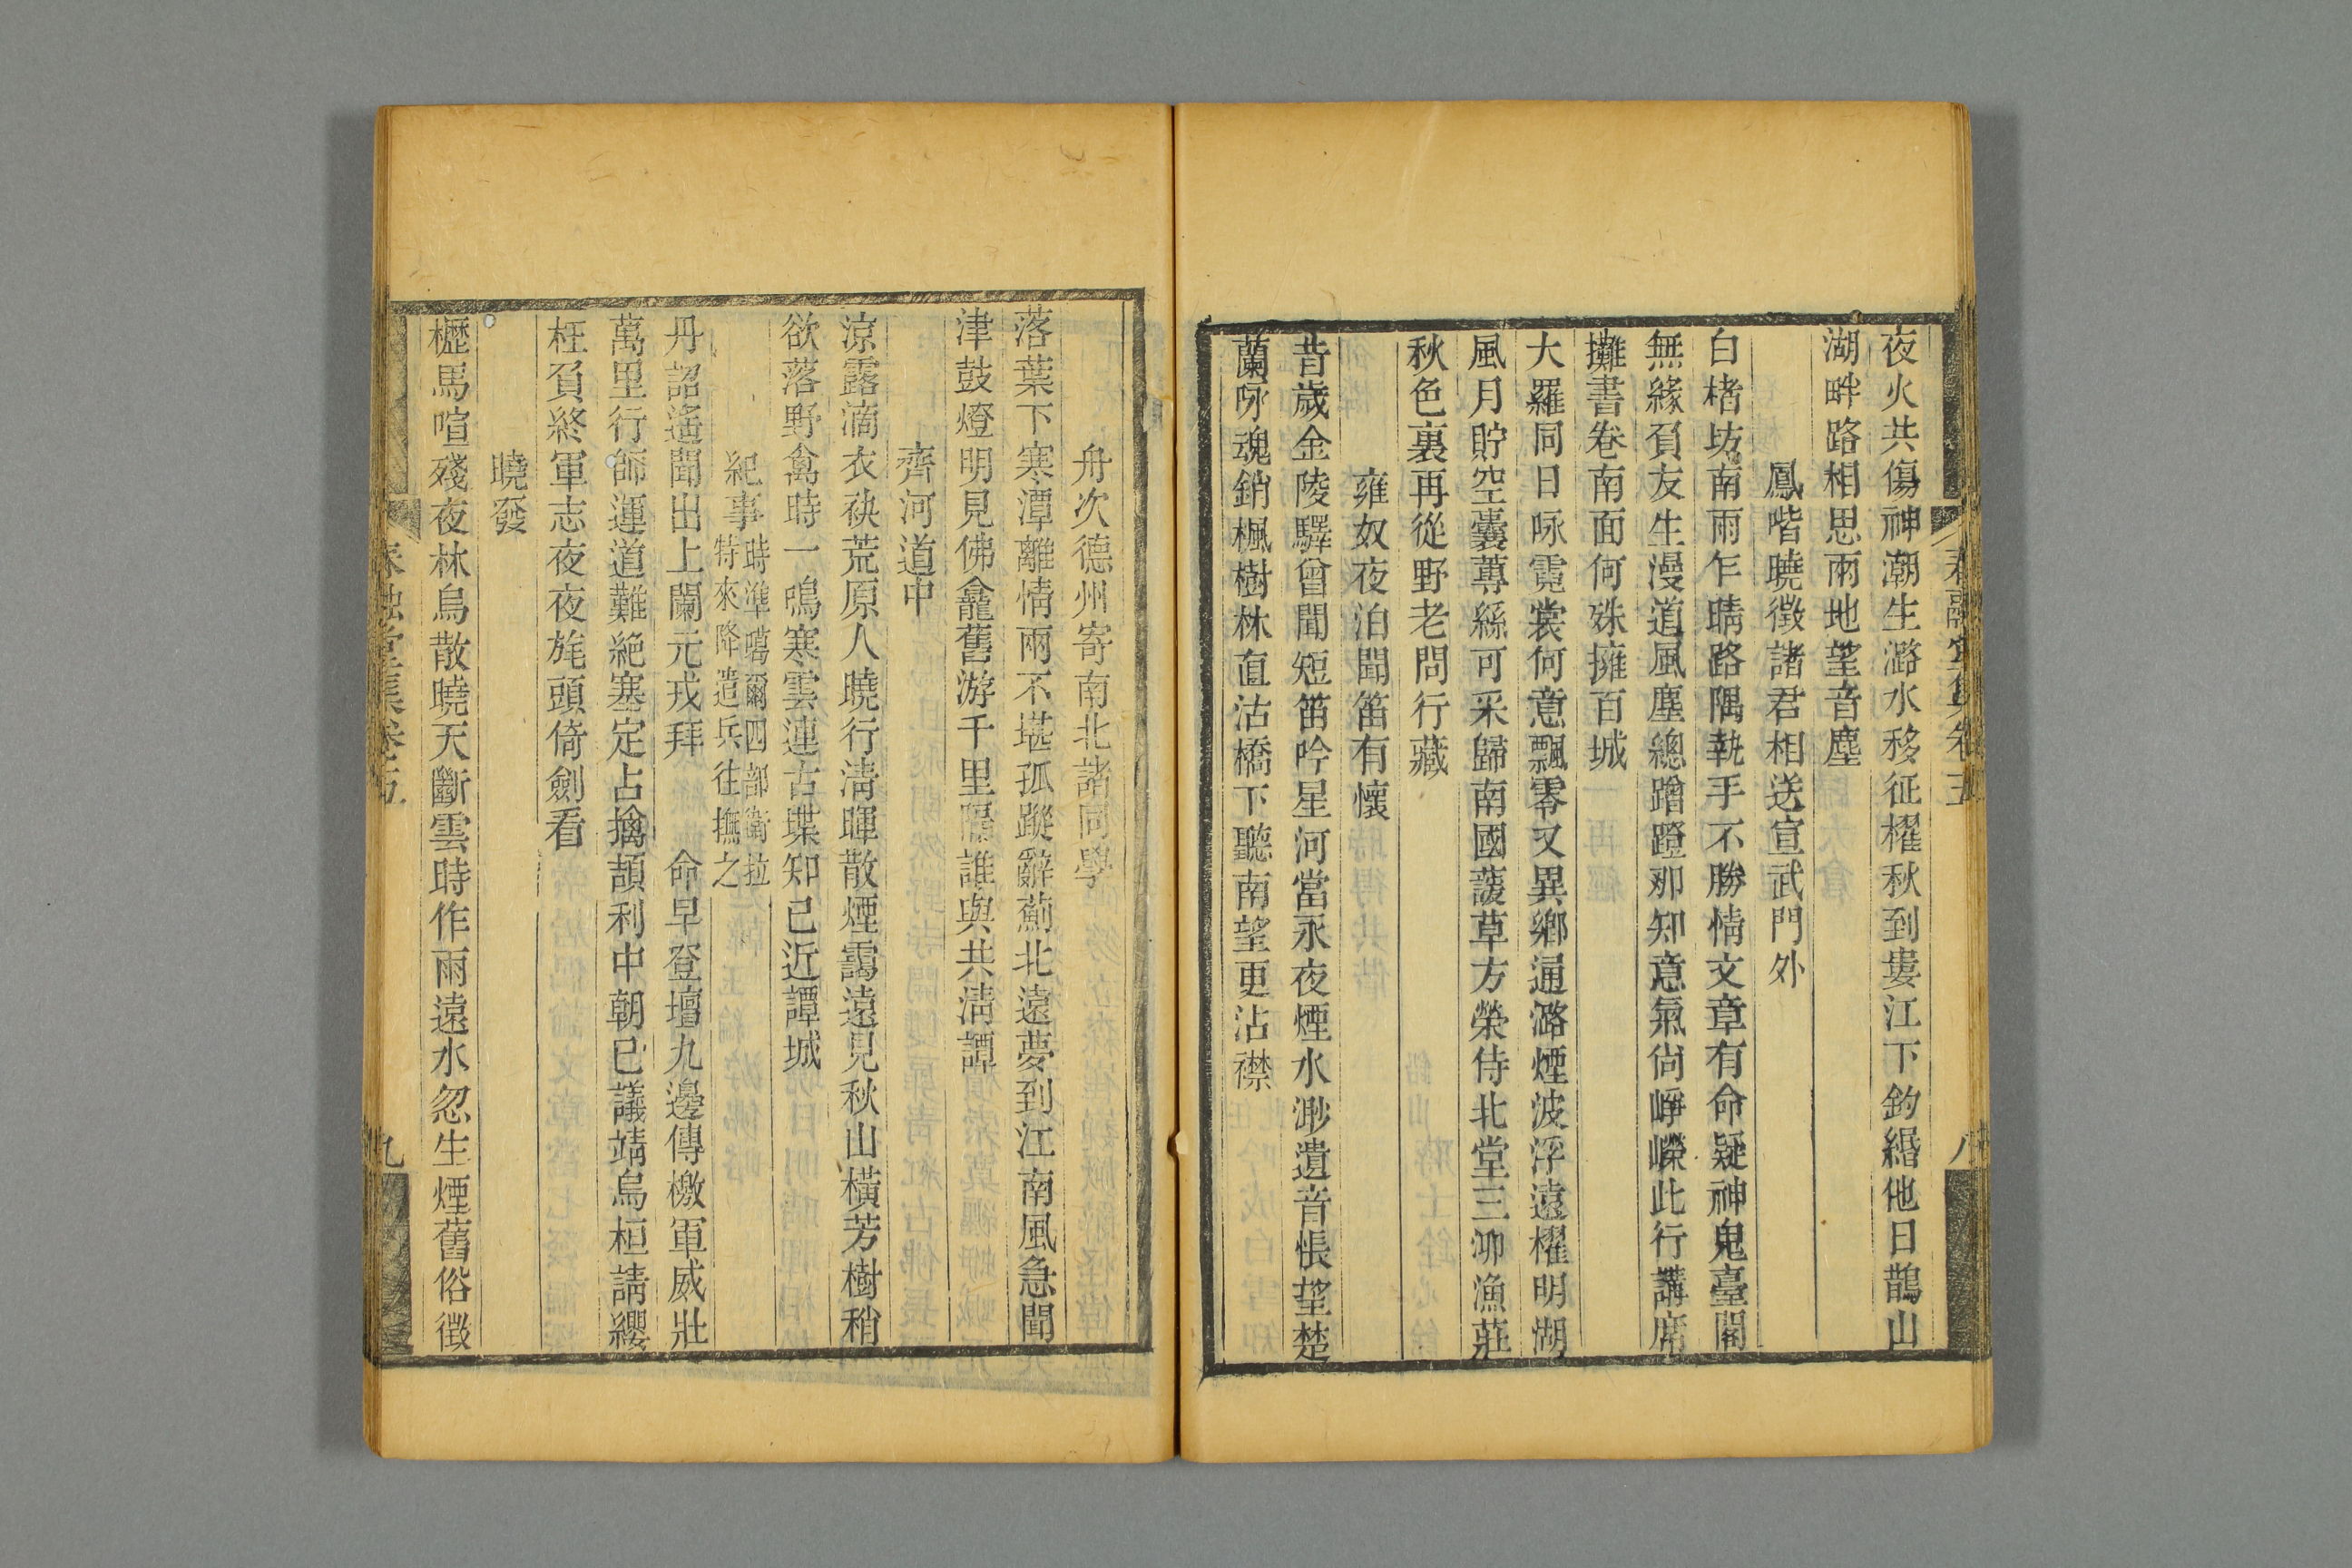 夜火共傷神潮生潞水移征櫂秋到婁江下釣緡他日鵲山
湖畔路相思雨地望音塵
鳳喈曉徵諸君相送宣武門外
白楮坊南雨乍晴路隅執手不勝情文章有命疑神鬼臺閣
無緣負友生漫道風塵總蹭蹬那知意氣尙崢嶸此行講席
攤書卷南面何殊擁百城
大羅同日咏霓裳何意飄零又異鄉通潞煙波浮遠櫂明湖
風月貯空囊蓴絲可采歸南國諼草方榮侍北堂三泖漁莊
秋色裏再從野老問行藏
雍奴夜泊聞笛有懷
昔歲金陵驛曾聞短笛吟星河當永夜煙水渺遺音悵望楚
蘭咏魂銷楓樹林直沽橋下聽南望更沾襟
舟次德州寄南北諸同學
落葉下寒潭離情雨不堪孤蹤辭薊北遠夢到江南風急聞
津鼓燈明見佛龕舊游千里隔誰與共淸譚
齊河道中
涼露滴衣袂荒原人曉行淸暉散煙靄遠見秋山橫芳樹稍
欲落野禽時一鳴寒雲連古堞知已近譚城
紀事時準噶爾四部衛拉特來降遣兵往撫之
丹詔遙聞出上闌元戎拜 命早登壇九邊傳檄軍威壯
萬里行師運道難絶塞定占擒頡利中朝已議靖烏桓請纓
枉負終軍志夜夜旄頭倚劍看
曉發
櫪馬喧殘夜林烏散曉天斷雲時作雨遠水忽生煙舊俗徵
春融堂集卷五
九